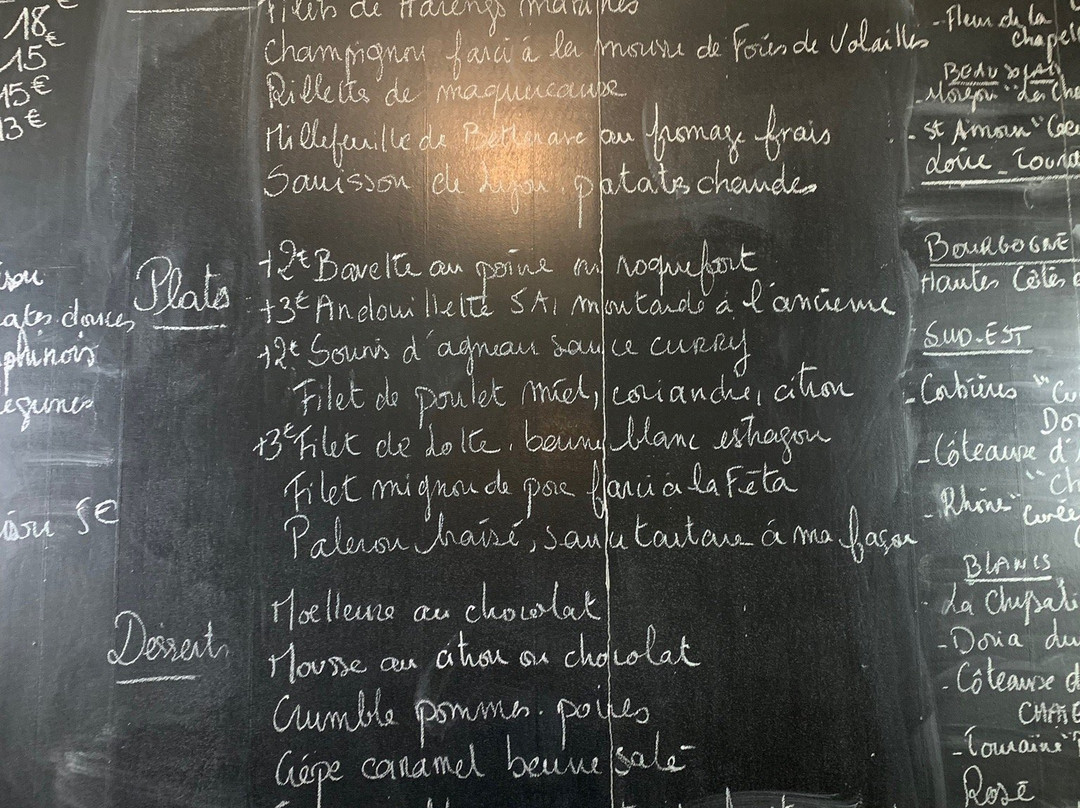 18€
15
15€
13€
Filets de Harengs marinés
Champignon farci à la mousse de Foies de Volailles
Rillette de maquereaux
Millefeuille de Betterave au fromage frais
Saucisson de Lyon. patates chaudes
Plats
+2€ Bavette au poivre ou roquefort
+3€ Andouillette 5A, moutarde à l'ancienne
+2€ Souris d'agneau sauce curry
Filet de poulet miel, coriandre, citron
+3€ Filet de Lotte. beurre blanc estragon
Filet mignon de porc farci à la Fêta
Paleron braisé, sauce tartare à ma façon
Desserts
Moelleux au chocolat
Mousse au citron ou chocolat
Crumble pommes. poires
Crêpe caramel beurre salé
ates douces
phinois
égumes
5€
- Fleur de la
chapel
BEAUJOLAIS
- Morgon "Les Cha
- St Amour "
Loire - Tour
BOURGOGNE
Hautes Côtes d
SUD-EST
- Corbières "Cu
Do
- Côteaux d'
"Ch
- Rhône "
Cuvée
BLANCS
- La Chip
- Doria du
- Côteaux d
CHA
- Touraine "
Rosé